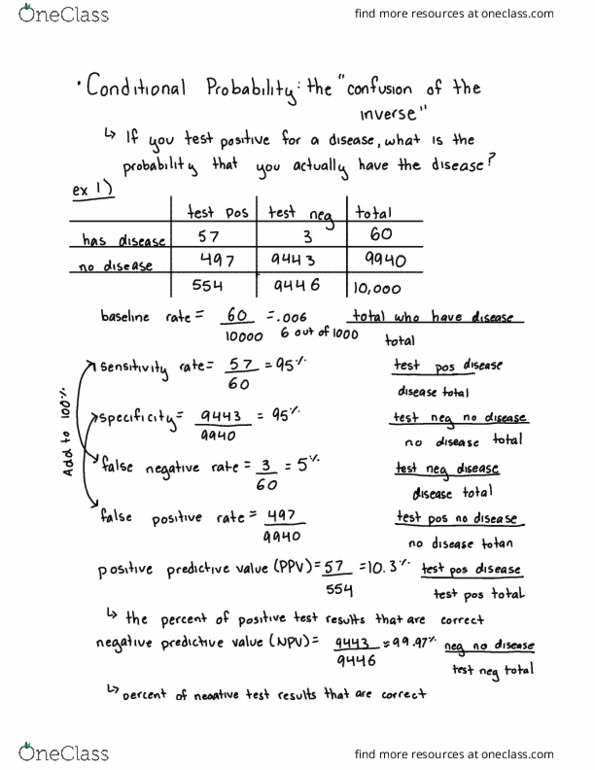 OneClass
find more resources at oneclass.com
• Conditional Probability: the "confusion of the
inverse"
↳ If you test positive for a disease, what is the
probability that you actually have the disease?
ex 1)
test pos test neg total
has disease 57 3 60
no disease 497 9443 9940
554 9446 10,000
baseline rate = 60/10000 = .006 6 out of 1000 total who have disease/total
Add to 100%
sensitivity rate = 57/60 = 95% test pos disease/disease total
specificity = 9443/9940 = 95% test neg no disease/no disease total
false negative rate = 3/60 = 5% test neg disease/disease total
false positive rate = 497/9940 test pos no disease/no disease totan
positive predictive value (PPV) = 57/554 = 10.3% test pos disease/test pos total
↳ the percent of positive test results that are correct
negative predictive value (NPV) = 9443/9446 = 99.97% neg no disease/test neg total
↳ percent of negative test results that are correct
OneClass
find more resources at oneclass.com